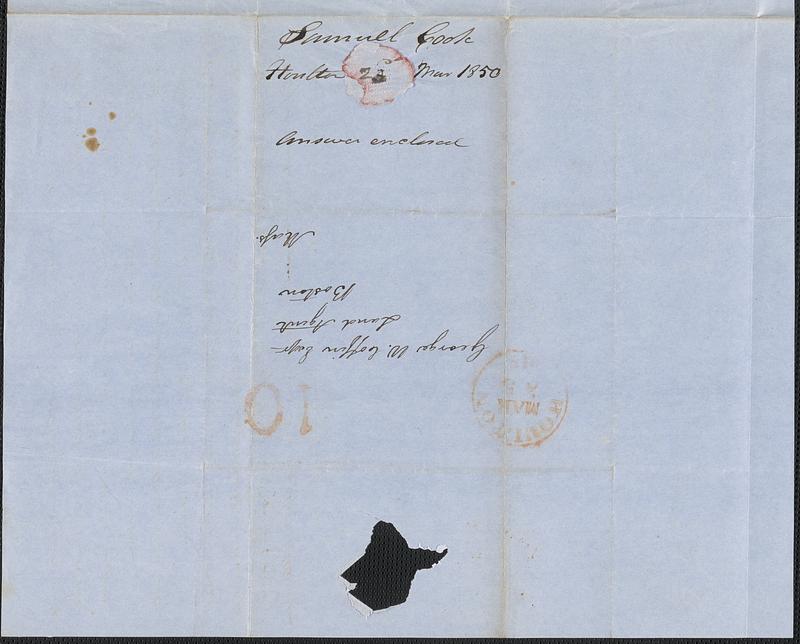 Samuel Cook
Houlton 22d Mar 1850
Answer enclosed
George W. Coffin Esqr
Land Agent
Boston
Mass.
10
HOULTON
MAR